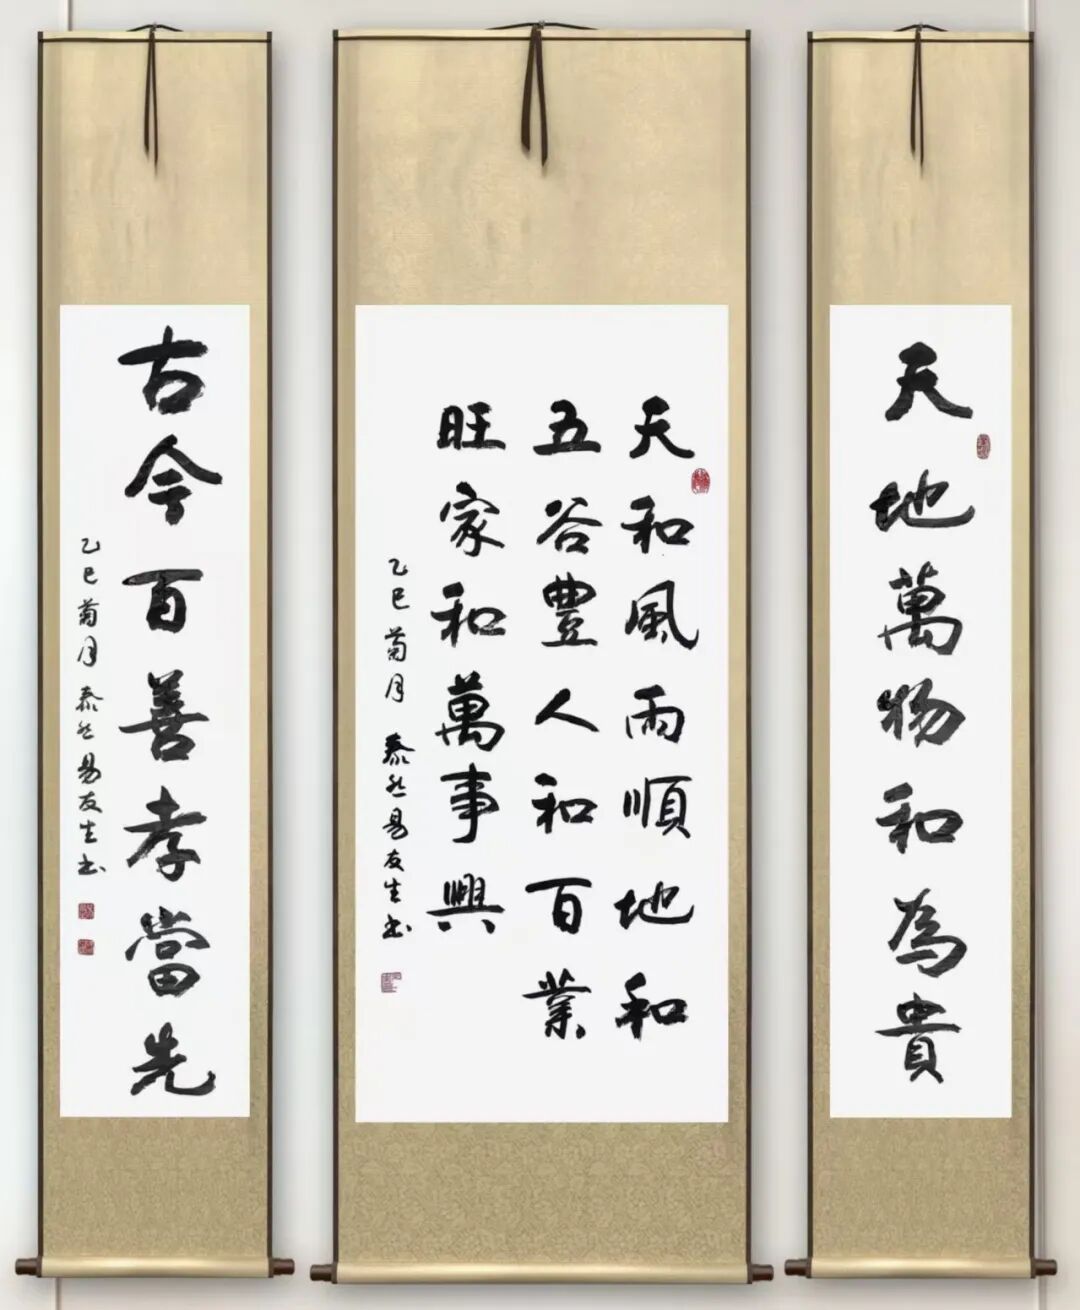 天地萬物和為貴
天和風雨順地和
五谷豐人和百業
旺家和萬事興
乙巳菊月 泰然易友生书
古今百善孝當先
乙巳菊月 泰然易友生书